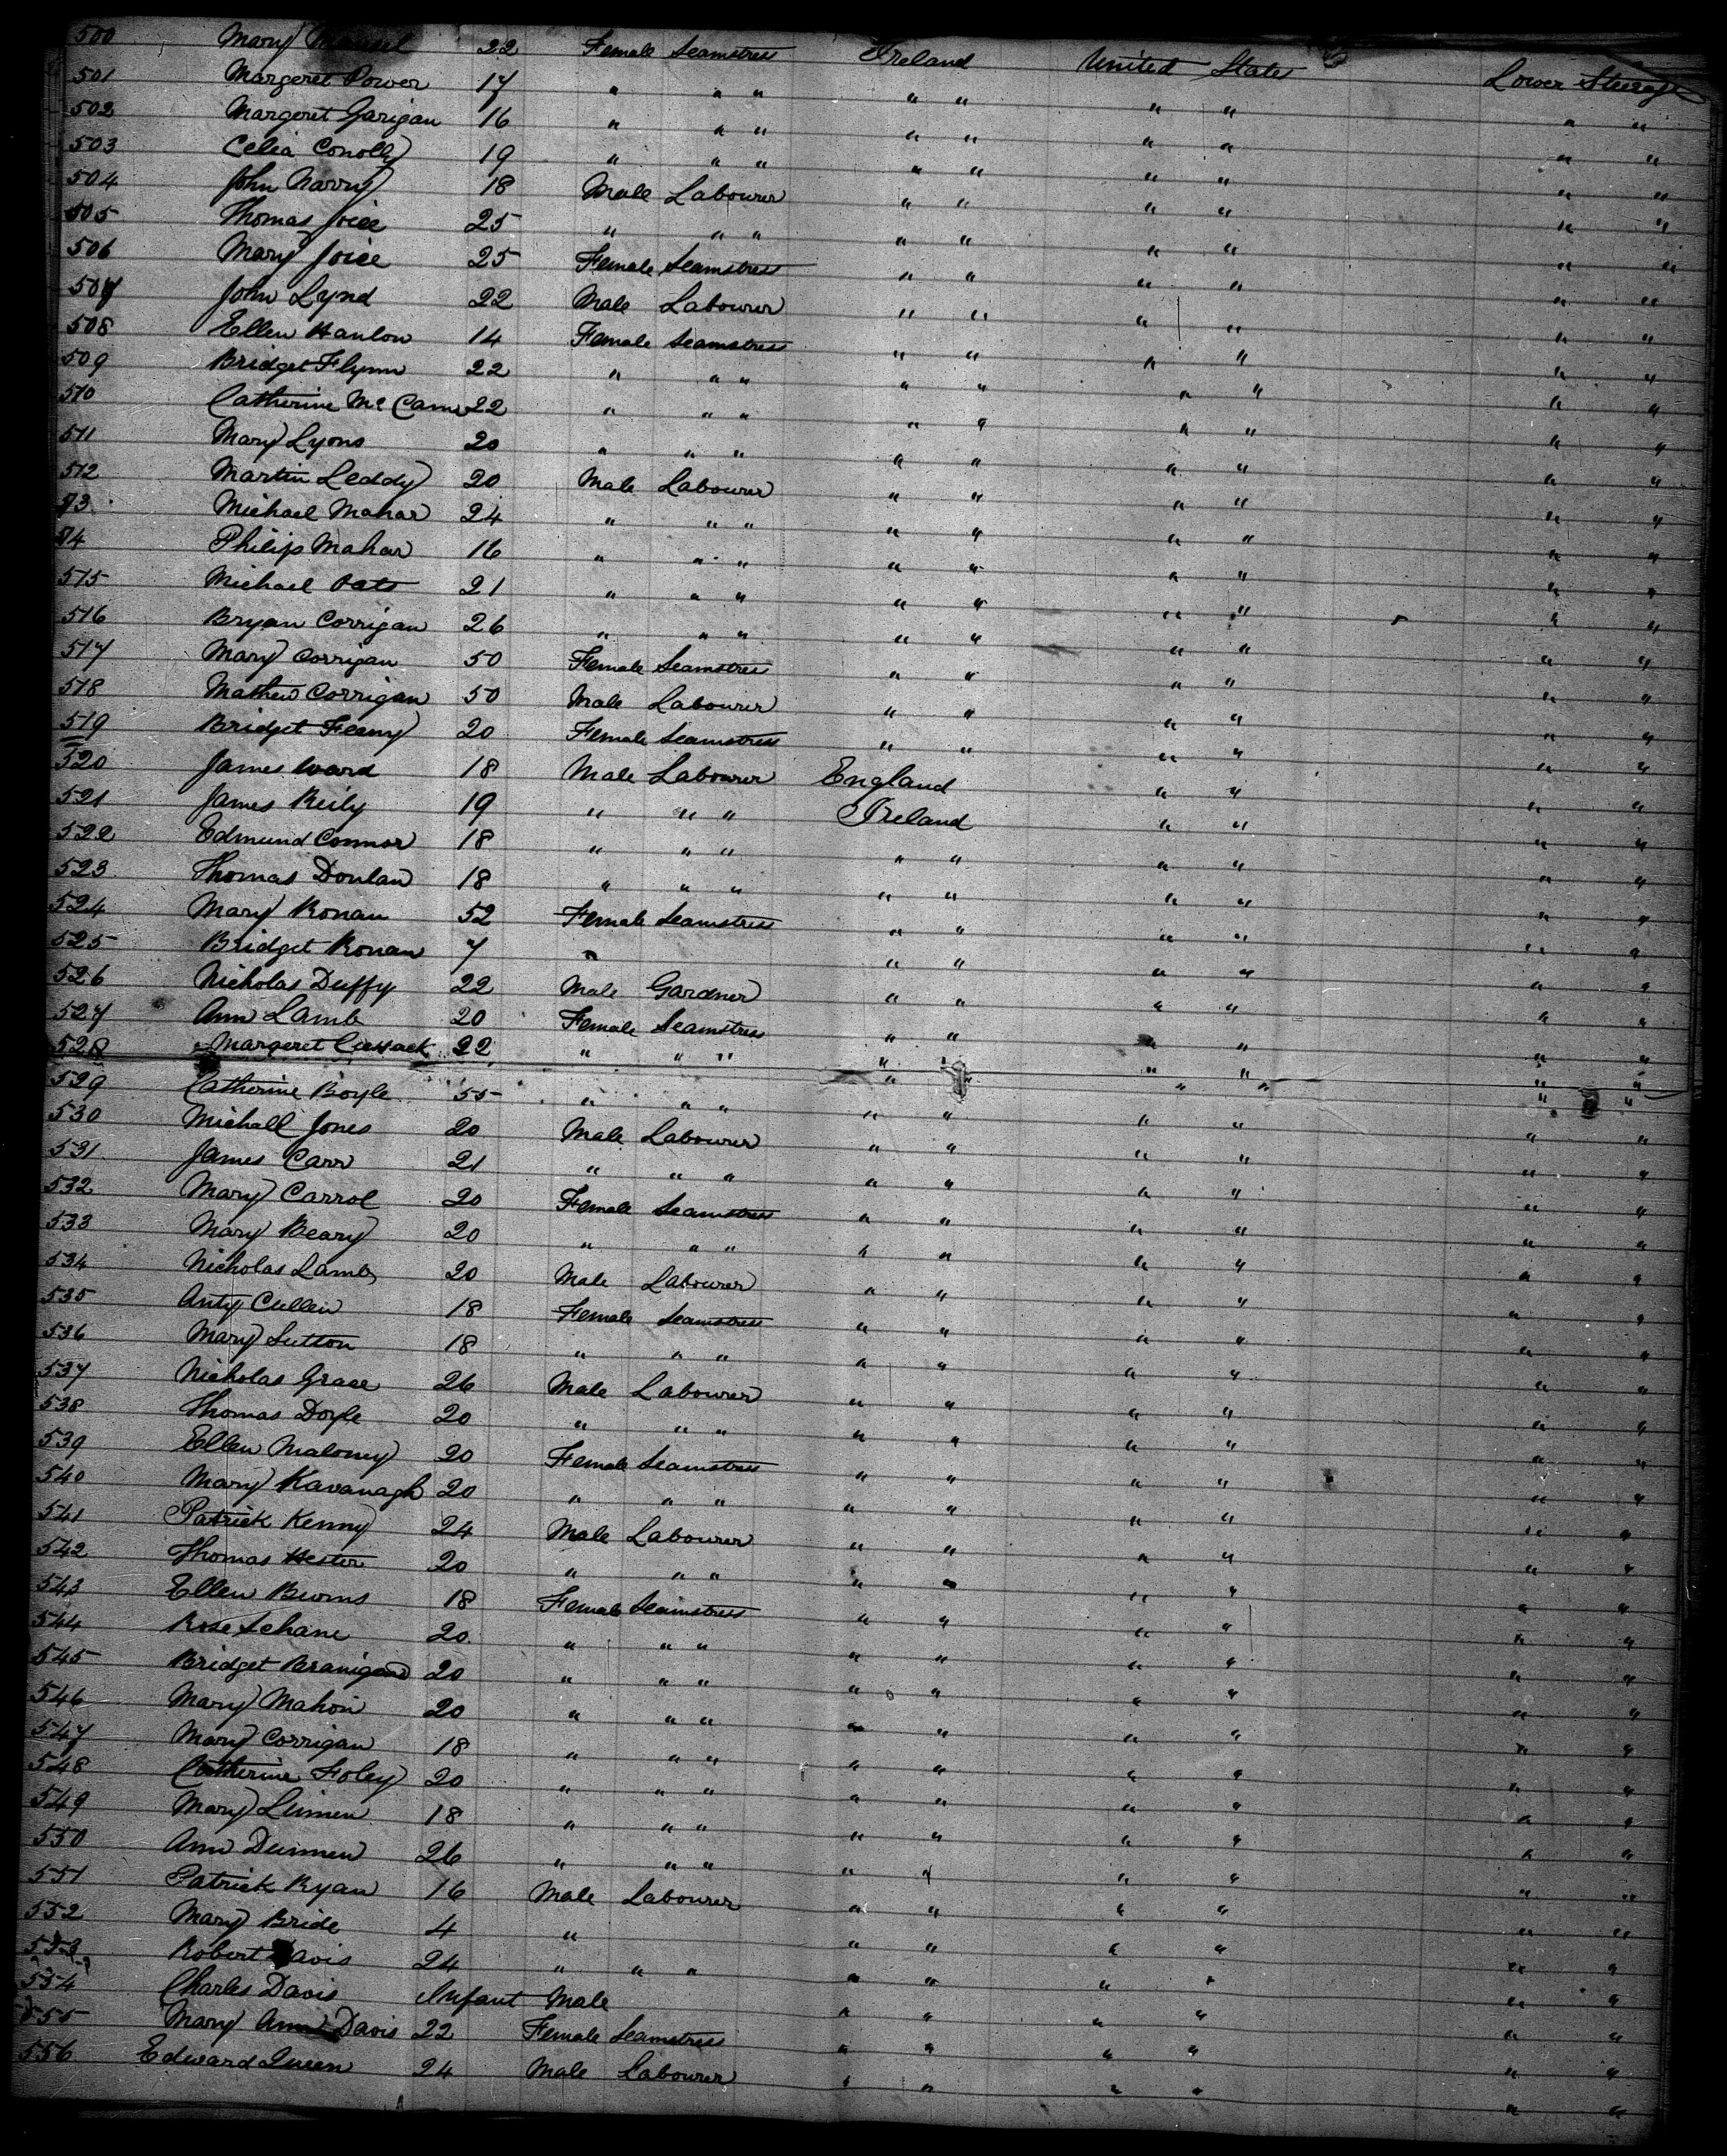 500 Mary 22 Female Seamstress Ireland United States Lower Steerage
501 Margeret Power 17 " " " " " " " " "
502 Margeret Garigan 16 " " " " " " " " "
503 Celia Conolly 19 " " " " " " " " "
504 John 18 Male Labourer " " " " " "
505 Thomas Joice 25 " " " " " " " " "
506 Mary Joice 25 Female Seamstress " " " " " "
507 John Lynd 22 Male Labourer " " " " " "
508 Ellen Hanlon 14 Female Seamstress " " " " " "
509 Bridget Flynn 22 " " " " " " " " "
510 Catherine Mc Cann 22 " " " " " " " " "
511 Mary Lyons 20 " " " " " " " " "
512 Martin Leddy 20 Male Labourer " " " " " "
13 Michael Mahar 24 " " " " " " " " "
14 Philip Mahar 16 " " " " " " " " "
515 Michael Oats 21 " " " " " " " " "
516 Bryan Corrigan 26 " " " " " " " " "
517 Mary Corrigan 50 Female Seamstress " " " " " "
518 Mathew Corrigan 50 Male Labourer " " " " " "
519 Bridget Feeny 20 Female Seamstress " " " " " "
520 James Ward 18 Male Labourer England " " " "
521 James Reily 19 " " " Ireland " " " "
522 Edmund Connor 18 " " " " " " " " "
523 Thomas Donlan 18 " " " " " " " " "
524 Mary Ronan 52 Female Seamstress " " " " " "
525 Bridget Ronan 7 " " " " " " "
526 Nicholas Duffy 22 Male Gardner " " " " " "
527 Ann Lamb 20 Female Seamstress " " " " " "
528 Margeret Cussack 22 " " " " " " " " "
529 Catherine Boyle 55 " " " " " " " " "
530 Michall Jones 20 Male Labourer " " " " " "
531 James Carr 21 " " " " " " " " "
532 Mary Carrol 20 Female Seamstress " " " " " "
533 Mary Beary 20 " " " " " " " " "
534 Nicholas Lamb 20 Male Labourer " " " " " "
535 Anty Cullen 18 Female Seamstress " " " " " "
536 Mary Sutton 18 " " " " " " " " "
537 Nicholas Grace 26 Male Labourer " " " " " "
538 Thomas Doyle 20 " " " " " " " " "
539 Ellen Maloney 20 Female Seamstress " " " " " "
540 Mary Kavanagh 20 " " " " " " " " "
541 Patrick Kenny 24 Male Labourer " " " " " "
542 Thomas Hester 20 " " " " " " " " "
543 Ellen Burns 18 Female Seamstress " " " " " "
544 Rose 20 " " " " " " " " "
545 Bridget Branigan 20 " " " " " " " " "
546 Mary Mahon 20 " " " " " " " " "
547 Mary Corrigan 18 " " " " " " " " "
548 Catherine Foley 20 " " " " " " " " "
549 Mary 18 " " " " " " " " "
550 Ann 26 " " " " " " " " "
551 Patrick Ryan 16 Male Labourer " " " " " "
552 Mary Bride 4 " " " " " " "
553 Robert Davis 24 " " " " " " " " "
554 Charles Davis Infant Male " " " " " "
555 Mary Ann Davis 22 Female Seamstress " " " " " "
556 Edward Queen 24 Male Labourer " " " " " "